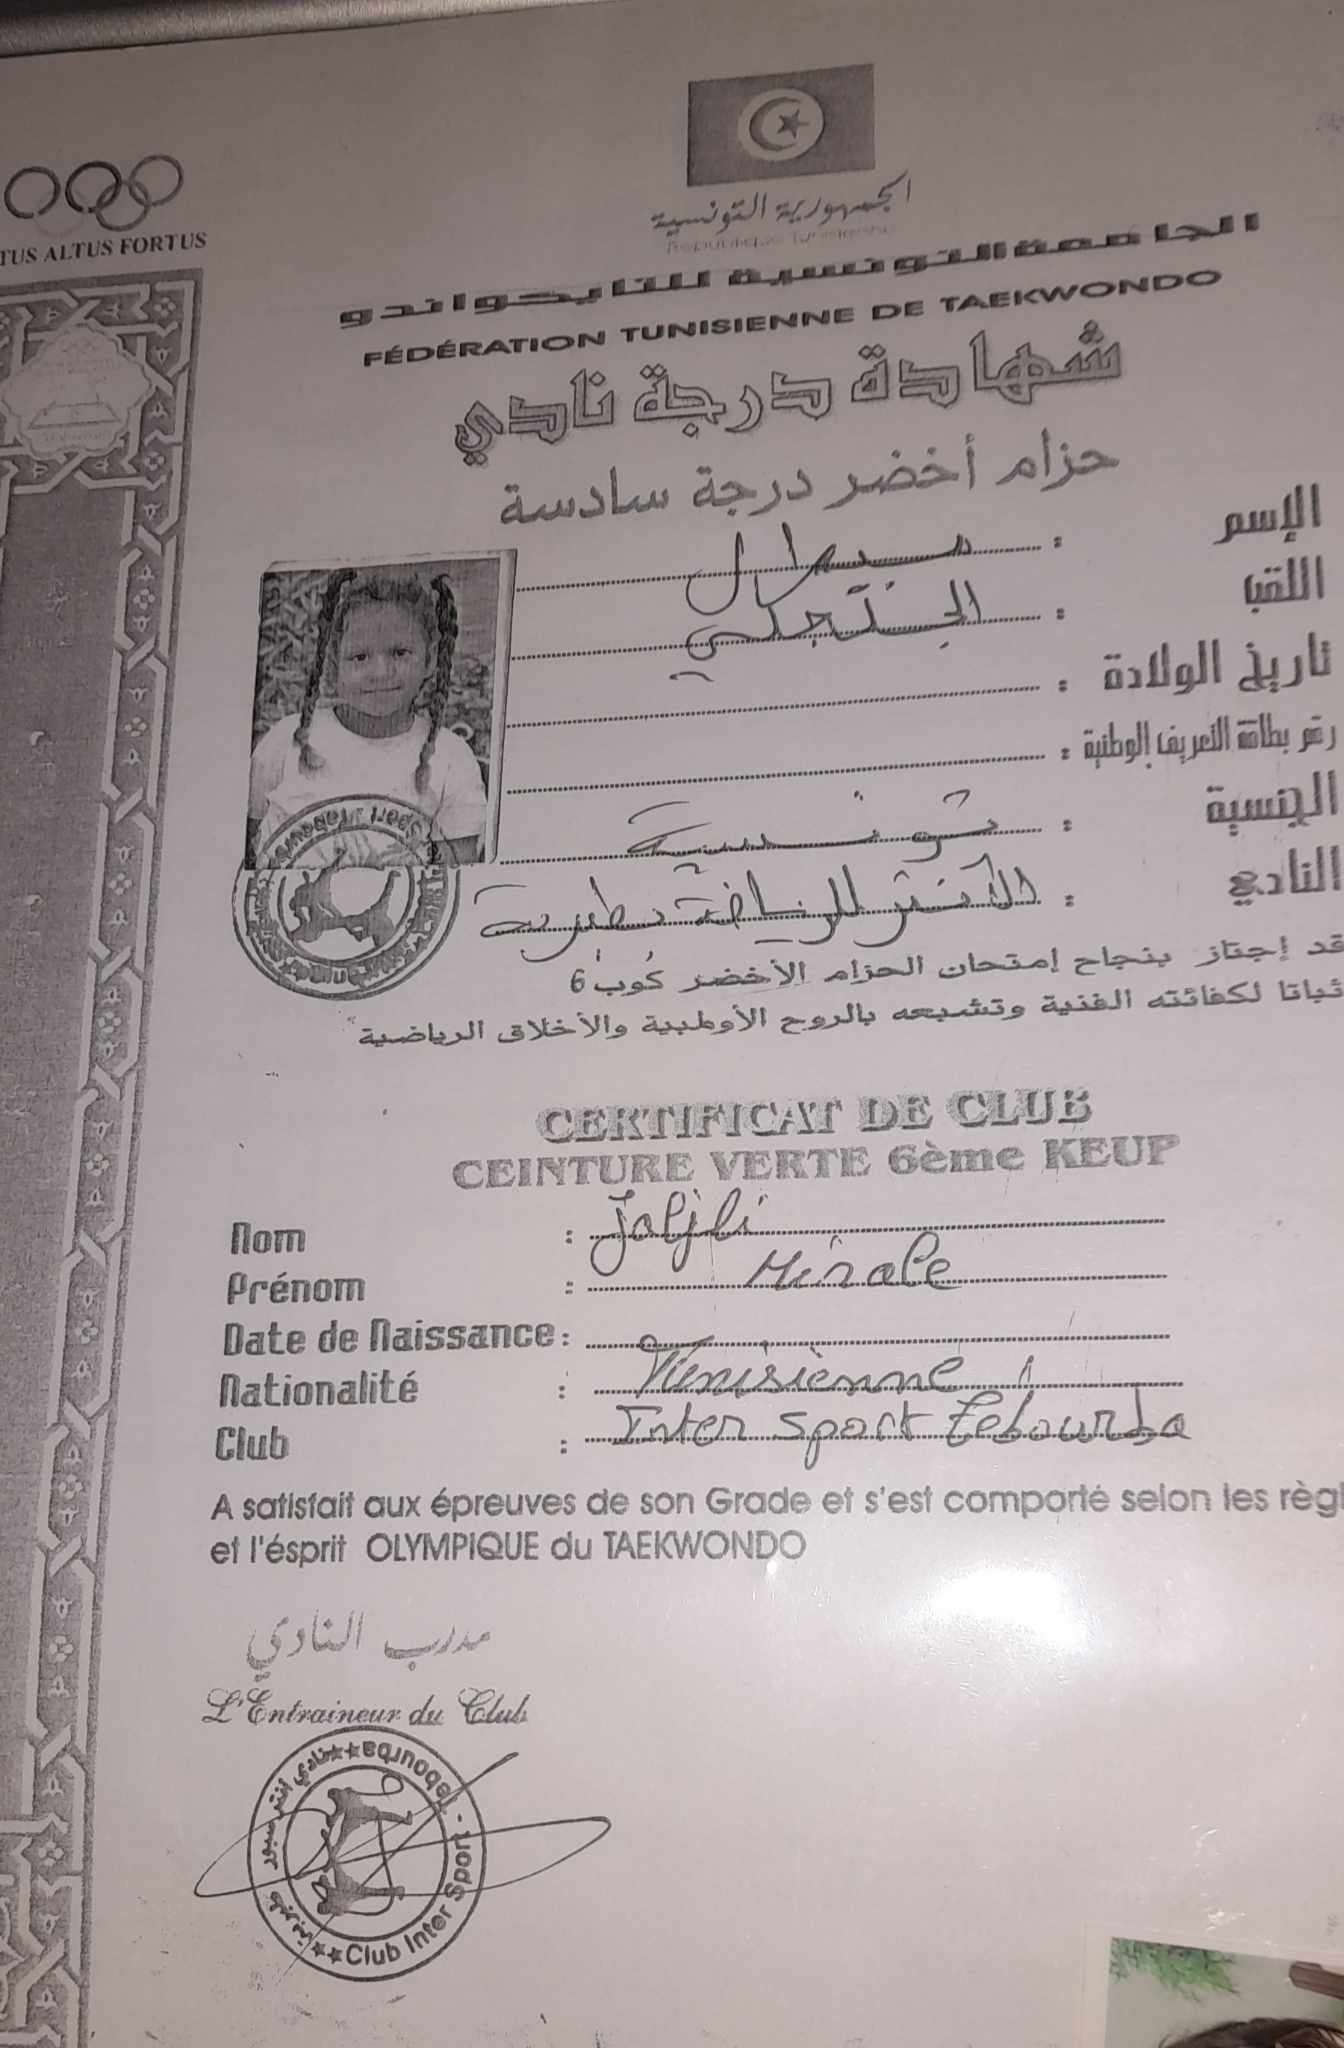 TUS ALTUS FORTUS
الجمهورية التونسية
République Tunisienne
الجامعة التونسية للتايكواندو
FÉDÉRATION TUNISIENNE DE TAEKWONDO
شهادة درجة نادي
حزام أخضر درجة سادسة
الإسم :
اللقب :
تاريخ الولادة :
رقم بطاقة التعريف الوطنية :
الجنسية : تونسية
النادي : الأنتر للرياضة بطبربة
قد إجتاز بنجاح إمتحان الحزام الأخضر كُوبْ 6
ثباتا لكفائته الفنية وتشبعه بالروح الأولمبية والأخلاق الرياضية
CERTIFICAT DE CLUB
CEINTURE VERTE 6ème KEUP
Nom : Jaljli
Prénom : Mirale
Date de Naissance :
Nationalité : Tunisienne
Club : Inter Sport Tebourba
A satisfait aux épreuves de son Grade et s'est comporté selon les règl
et l'ésprit OLYMPIQUE du TAEKWONDO
مدرب النادي
L'Entraineur du Club
نادي انتر سبور طبربة ★★ Club Inter Sport - Tebourba ★★